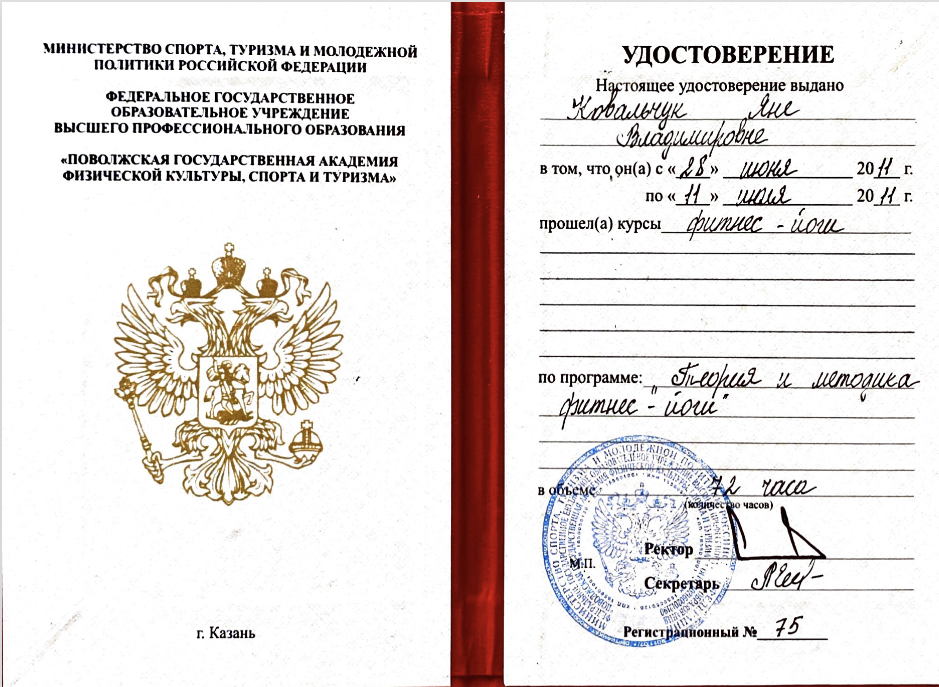 МИНИСТЕРСТВО СПОРТА, ТУРИЗМА И МОЛОДЕЖНОЙ
ПОЛИТИКИ РОССИЙСКОЙ ФЕДЕРАЦИИ
ФЕДЕРАЛЬНОЕ ГОСУДАРСТВЕННОЕ
ОБРАЗОВАТЕЛЬНОЕ УЧРЕЖДЕНИЕ
ВЫСШЕГО ПРОФЕССИОНАЛЬНОГО ОБРАЗОВАНИЯ
«ПОВОЛЖСКАЯ ГОСУДАРСТВЕННАЯ АКАДЕМИЯ
ФИЗИЧЕСКОЙ КУЛЬТУРЫ, СПОРТА И ТУРИЗМА»
г. Казань
УДОСТОВЕРЕНИЕ
Настоящее удостоверение выдано
Ковальчук Яне
Владимировне
в том, что он(а) с «28» июня 2011 г.
по «11» июля 2011 г.
прошел(а) курсы фитнес - йоги
по программе: "Теория и методика
фитнес - йоги"
в объеме 72 часа
(количество часов)
Ректор
М.П.
Секретарь
Регистрационный № 75